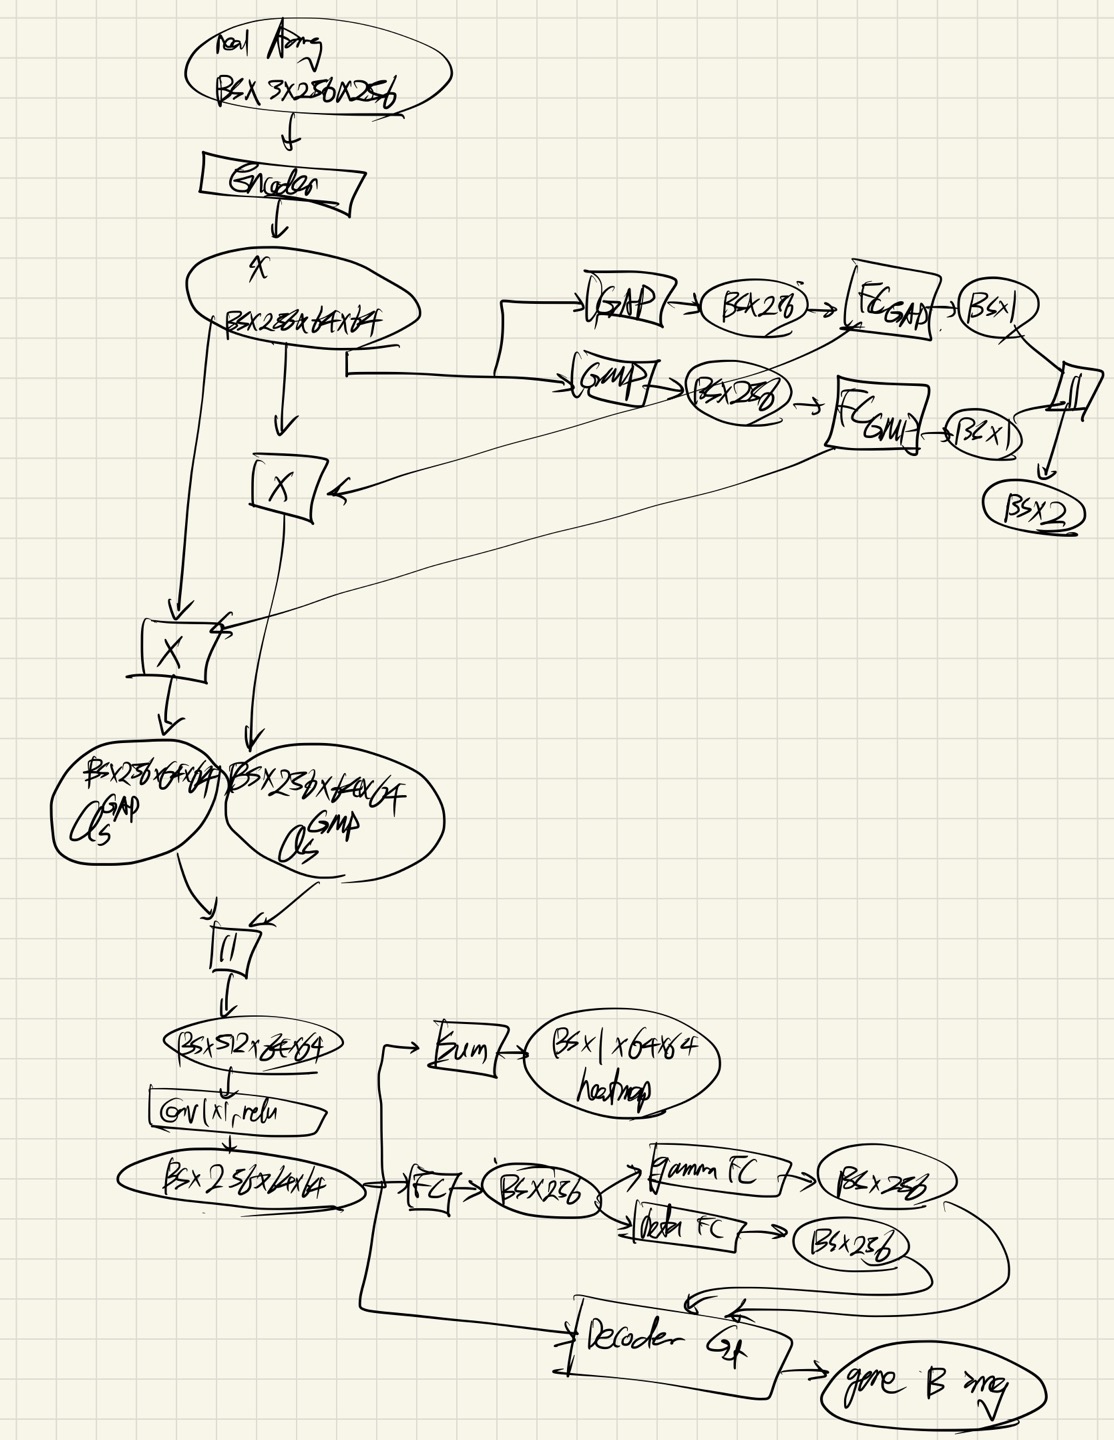 real A img
BSX 3X256X256
Encoder
X
BSX256x64x64
GAP
BSX256
FC GAP
BSX1
GMP
BSX256
FC GMP
BSX1
||
BSX2
X
X
BSX256x64x64
as GAP
BSX256x64x64
as GMP
||
BSx512x64x64
Conv1x1, relu
BSX256x64x64
Sum
BSx1x64x64
heatmap
FC
BSX256
gamm FC
BSX256
beta FC
BSX256
Decoder G
gene B img